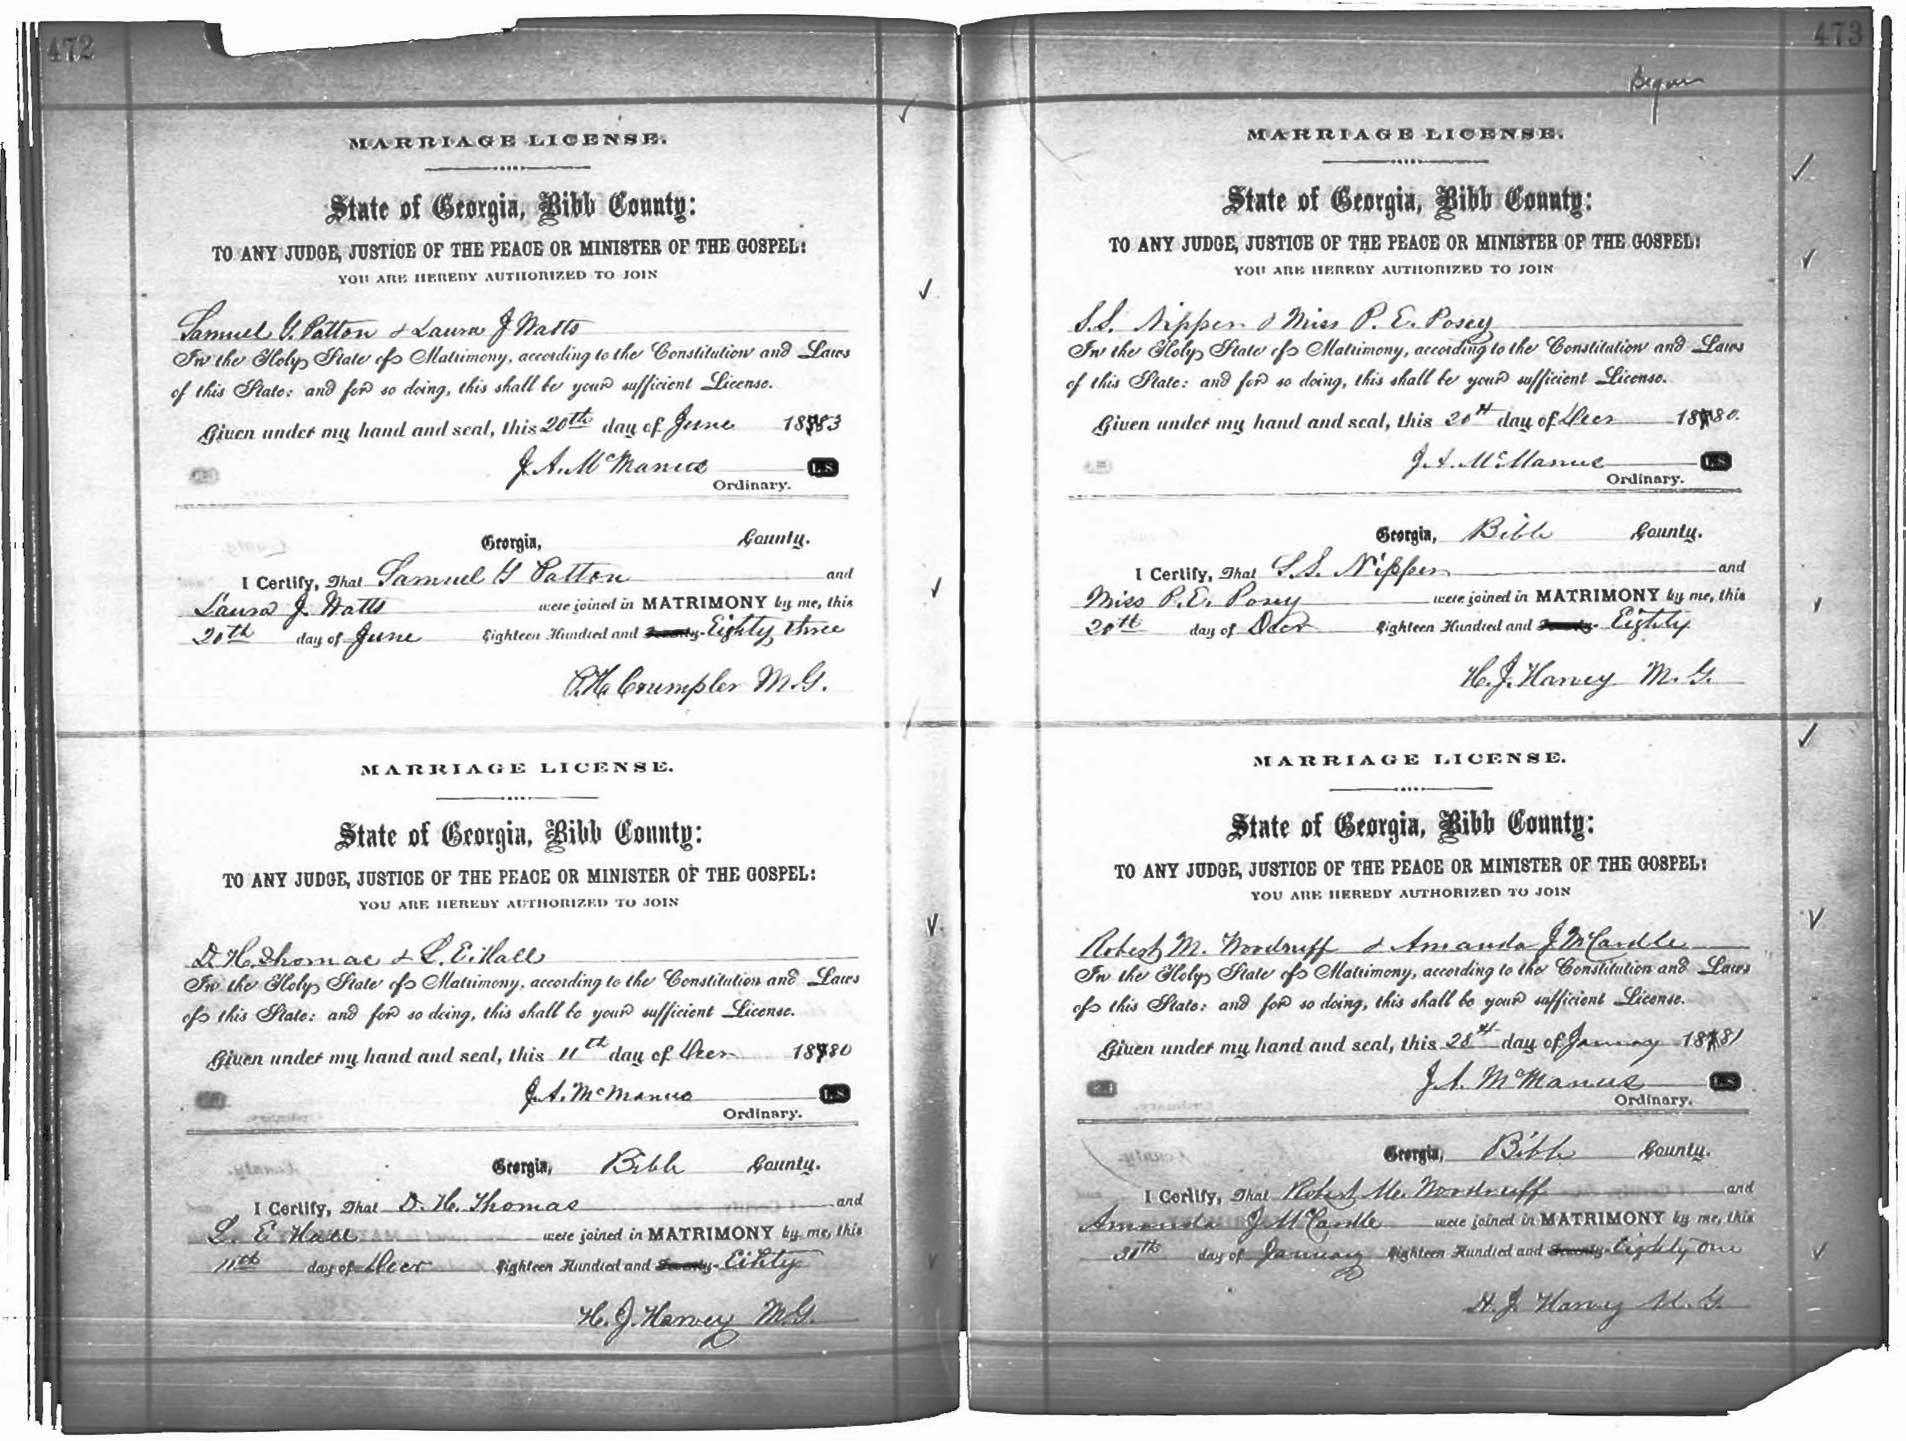 472
MARRIAGE LICENSE.
State of Georgia, Bibb County:
TO ANY JUDGE, JUSTICE OF THE PEACE OR MINISTER OF THE GOSPEL:
YOU ARE HEREBY AUTHORIZED TO JOIN
Samuel G. Patton & Laura J Watts
In the Holy State of Matrimony, according to the Constitution and Laws
of this State: and for so doing, this shall be your sufficient License.
Given under my hand and seal, this 20th day of June 1883
J. A. McManus L.S.
Ordinary.
Georgia, County.
I Certify, That Samuel G Patton and
Laura J. Watts were joined in MATRIMONY by me, this
20th day of June Eighteen Hundred and Seventy- Eighty three
Crumpler M.G.
MARRIAGE LICENSE.
State of Georgia, Bibb County:
TO ANY JUDGE, JUSTICE OF THE PEACE OR MINISTER OF THE GOSPEL:
YOU ARE HEREBY AUTHORIZED TO JOIN
D. H. Thomas & L. E. Hall
In the Holy State of Matrimony, according to the Constitution and Laws
of this State: and for so doing, this shall be your sufficient License.
Given under my hand and seal, this 11th day of Decr 1880
J. A. McManus L.S.
Ordinary.
Georgia, Bibb County.
I Certify, That D. H. Thomas and
L. E Hall were joined in MATRIMONY by me, this
11th day of Decr Eighteen Hundred and Seventy- Eihty
H. J. Harvey M.G.
473
MARRIAGE LICENSE.
State of Georgia, Bibb County:
TO ANY JUDGE, JUSTICE OF THE PEACE OR MINISTER OF THE GOSPEL:
YOU ARE HEREBY AUTHORIZED TO JOIN
S. S. Nipper & Miss P. E. Posey
In the Holy State of Matrimony, according to the Constitution and Laws
of this State: and for so doing, this shall be your sufficient License.
Given under my hand and seal, this 20th day of Decr 1880.
J. A. McManus L.S.
Ordinary.
Georgia, Bibb County.
I Certify, That S. S. Nipper and
Miss P. E. Posey were joined in MATRIMONY by me, this
20th day of Decr Eighteen Hundred and Seventy- Eighty
H. J. Harvey M. G.
MARRIAGE LICENSE.
State of Georgia, Bibb County:
TO ANY JUDGE, JUSTICE OF THE PEACE OR MINISTER OF THE GOSPEL:
YOU ARE HEREBY AUTHORIZED TO JOIN
Robert M. Woodruff & Amanda J McCardle
In the Holy State of Matrimony, according to the Constitution and Laws
of this State: and for so doing, this shall be your sufficient License.
Given under my hand and seal, this 28th day of January 1881
J. A. McManus L.S.
Ordinary.
Georgia, Bibb County.
I Certify, That Robert M. Woodruff and
Amanda J McCardle were joined in MATRIMONY by me, this
day of January Eighteen Hundred and Seventy- Eighty One
H. J Harvey M. G.